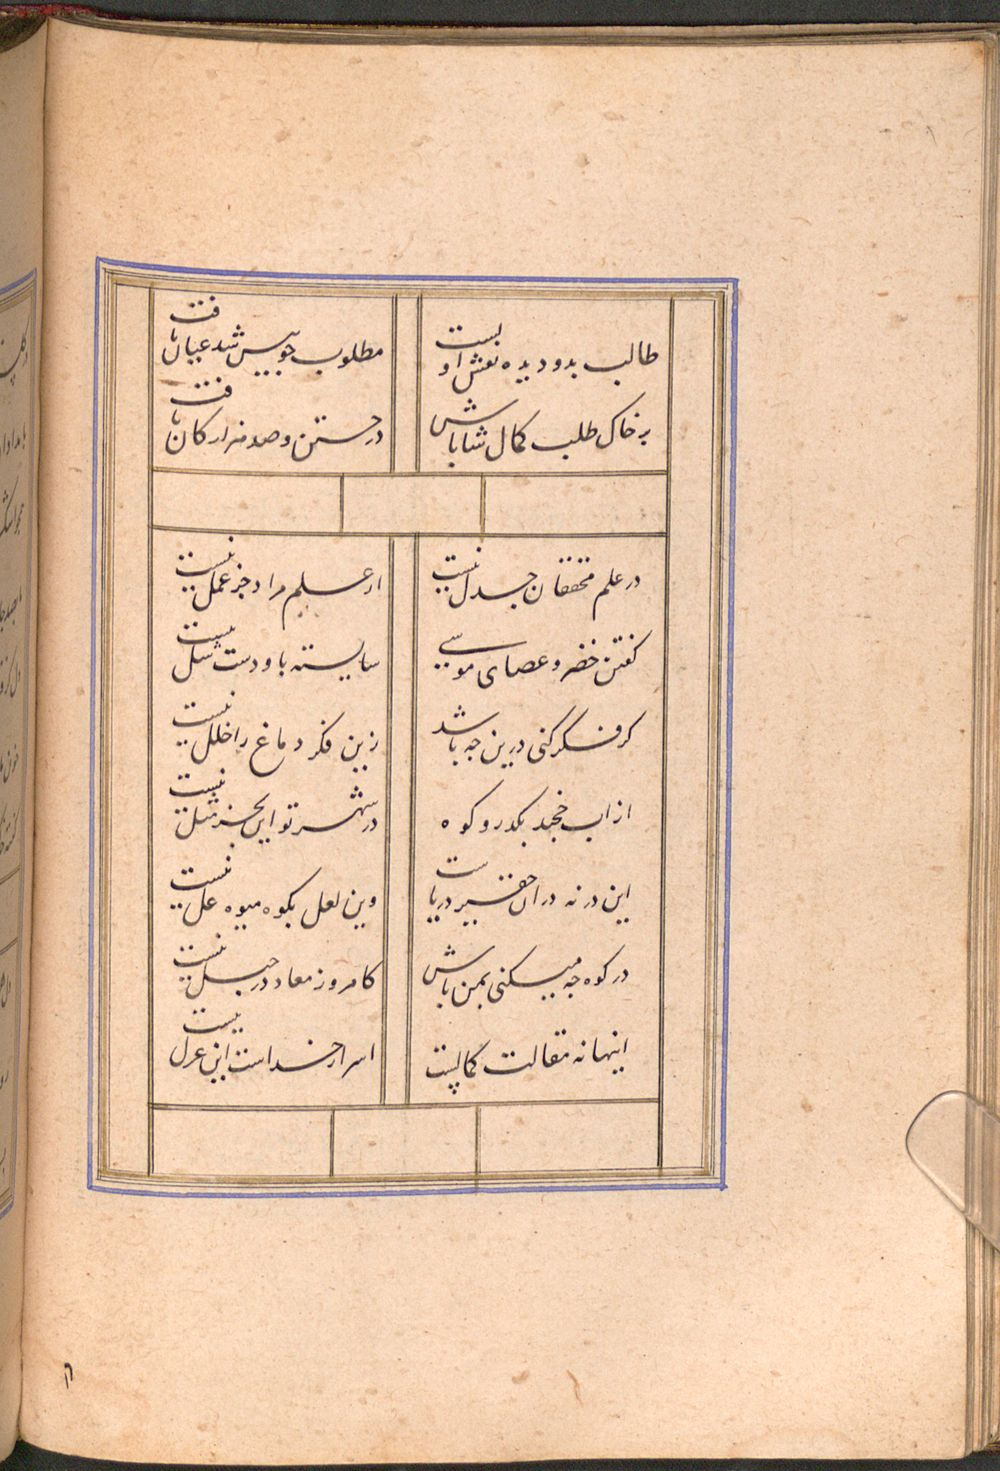 طالب بدو دیده نقش او بست مطلوب جو بیس شد عیان یافت
بر خاک طلب کمال شاباش در جستن و صد هزار کان یافت
در علم محققان جدل نیست از علم مراد جز عمل نیست
کفتن خضر و عصای موسی شایسته با و دست شل نیست
کر فکر کنی درین جه باشد زین فکر دماغ را خلل نیست
از اب خجند بکدر و کوه در شهر تو این بجز مثل نیست
این در نه در ان حقیر دریاست وین لعل بکوه میوه عل نیست
در کوه جه میکنی بمن باش کامروز معاد در جبل نیست
اینها نه مقالت کمالست اسرار خداست این غزل نیست